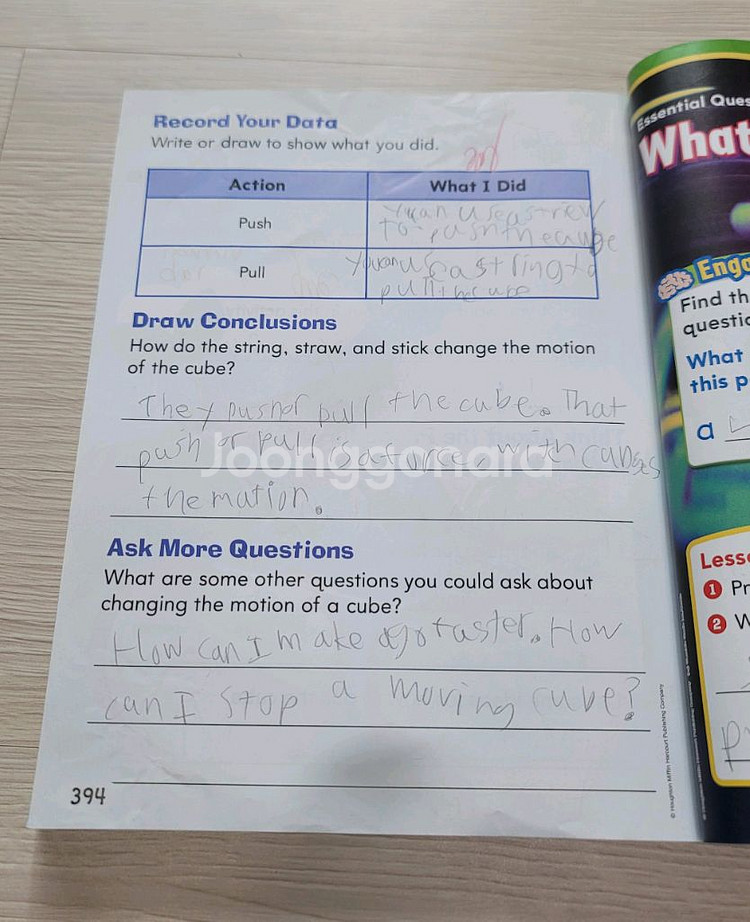 Record Your Data
Write or draw to show what you did.
Action
What I Did
Push
You can use a strew
to push the cube
Pull
You can use a string to
pull the cube
Draw Conclusions
How do the string, straw, and stick change the motion
of the cube?
They push or pull the cube. That
push or pull is a force with
the mation.
Joonggonara
Ask More Questions
What are some other questions you could ask about
changing the motion of a cube?
How can I make go faster. How
can I stop a moving cube?
394
© Houghton Mifflin Harcourt Publishing Company
Essential Ques
What
Enga
Find th
questio
What
this p
a
Lesso
1 Pr
2 W